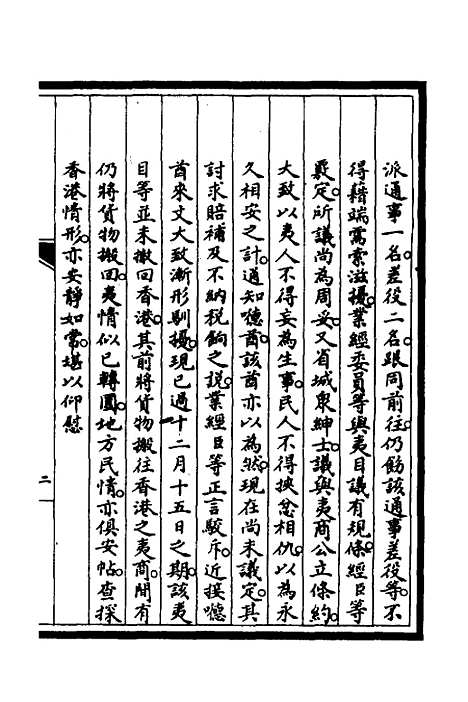 派通事一名差役二名跟同前往仍飭該通事差役等不
得藉端需索滋擾業經委員等與夷目議有規條經臣等
覈定所議尚為周妥又省城衆紳士議與夷商公立條約
大致以夷人不得妄為生事民人不得挾忿相仇以為永
久相安之計通知噫酋該酋亦以為然現在尚未議定其
討求賠補及不納稅餉之說業經臣等正言駁斥近接噫
酋來文大致漸形馴擾現已過十二月十五日之期該夷
目等並未撤回香港其前將貨物搬往香港之夷商間有
仍將貨物搬回夷情似已轉圜地方民情亦俱安帖查探
香港情形亦安靜如常堪以仰慰
二